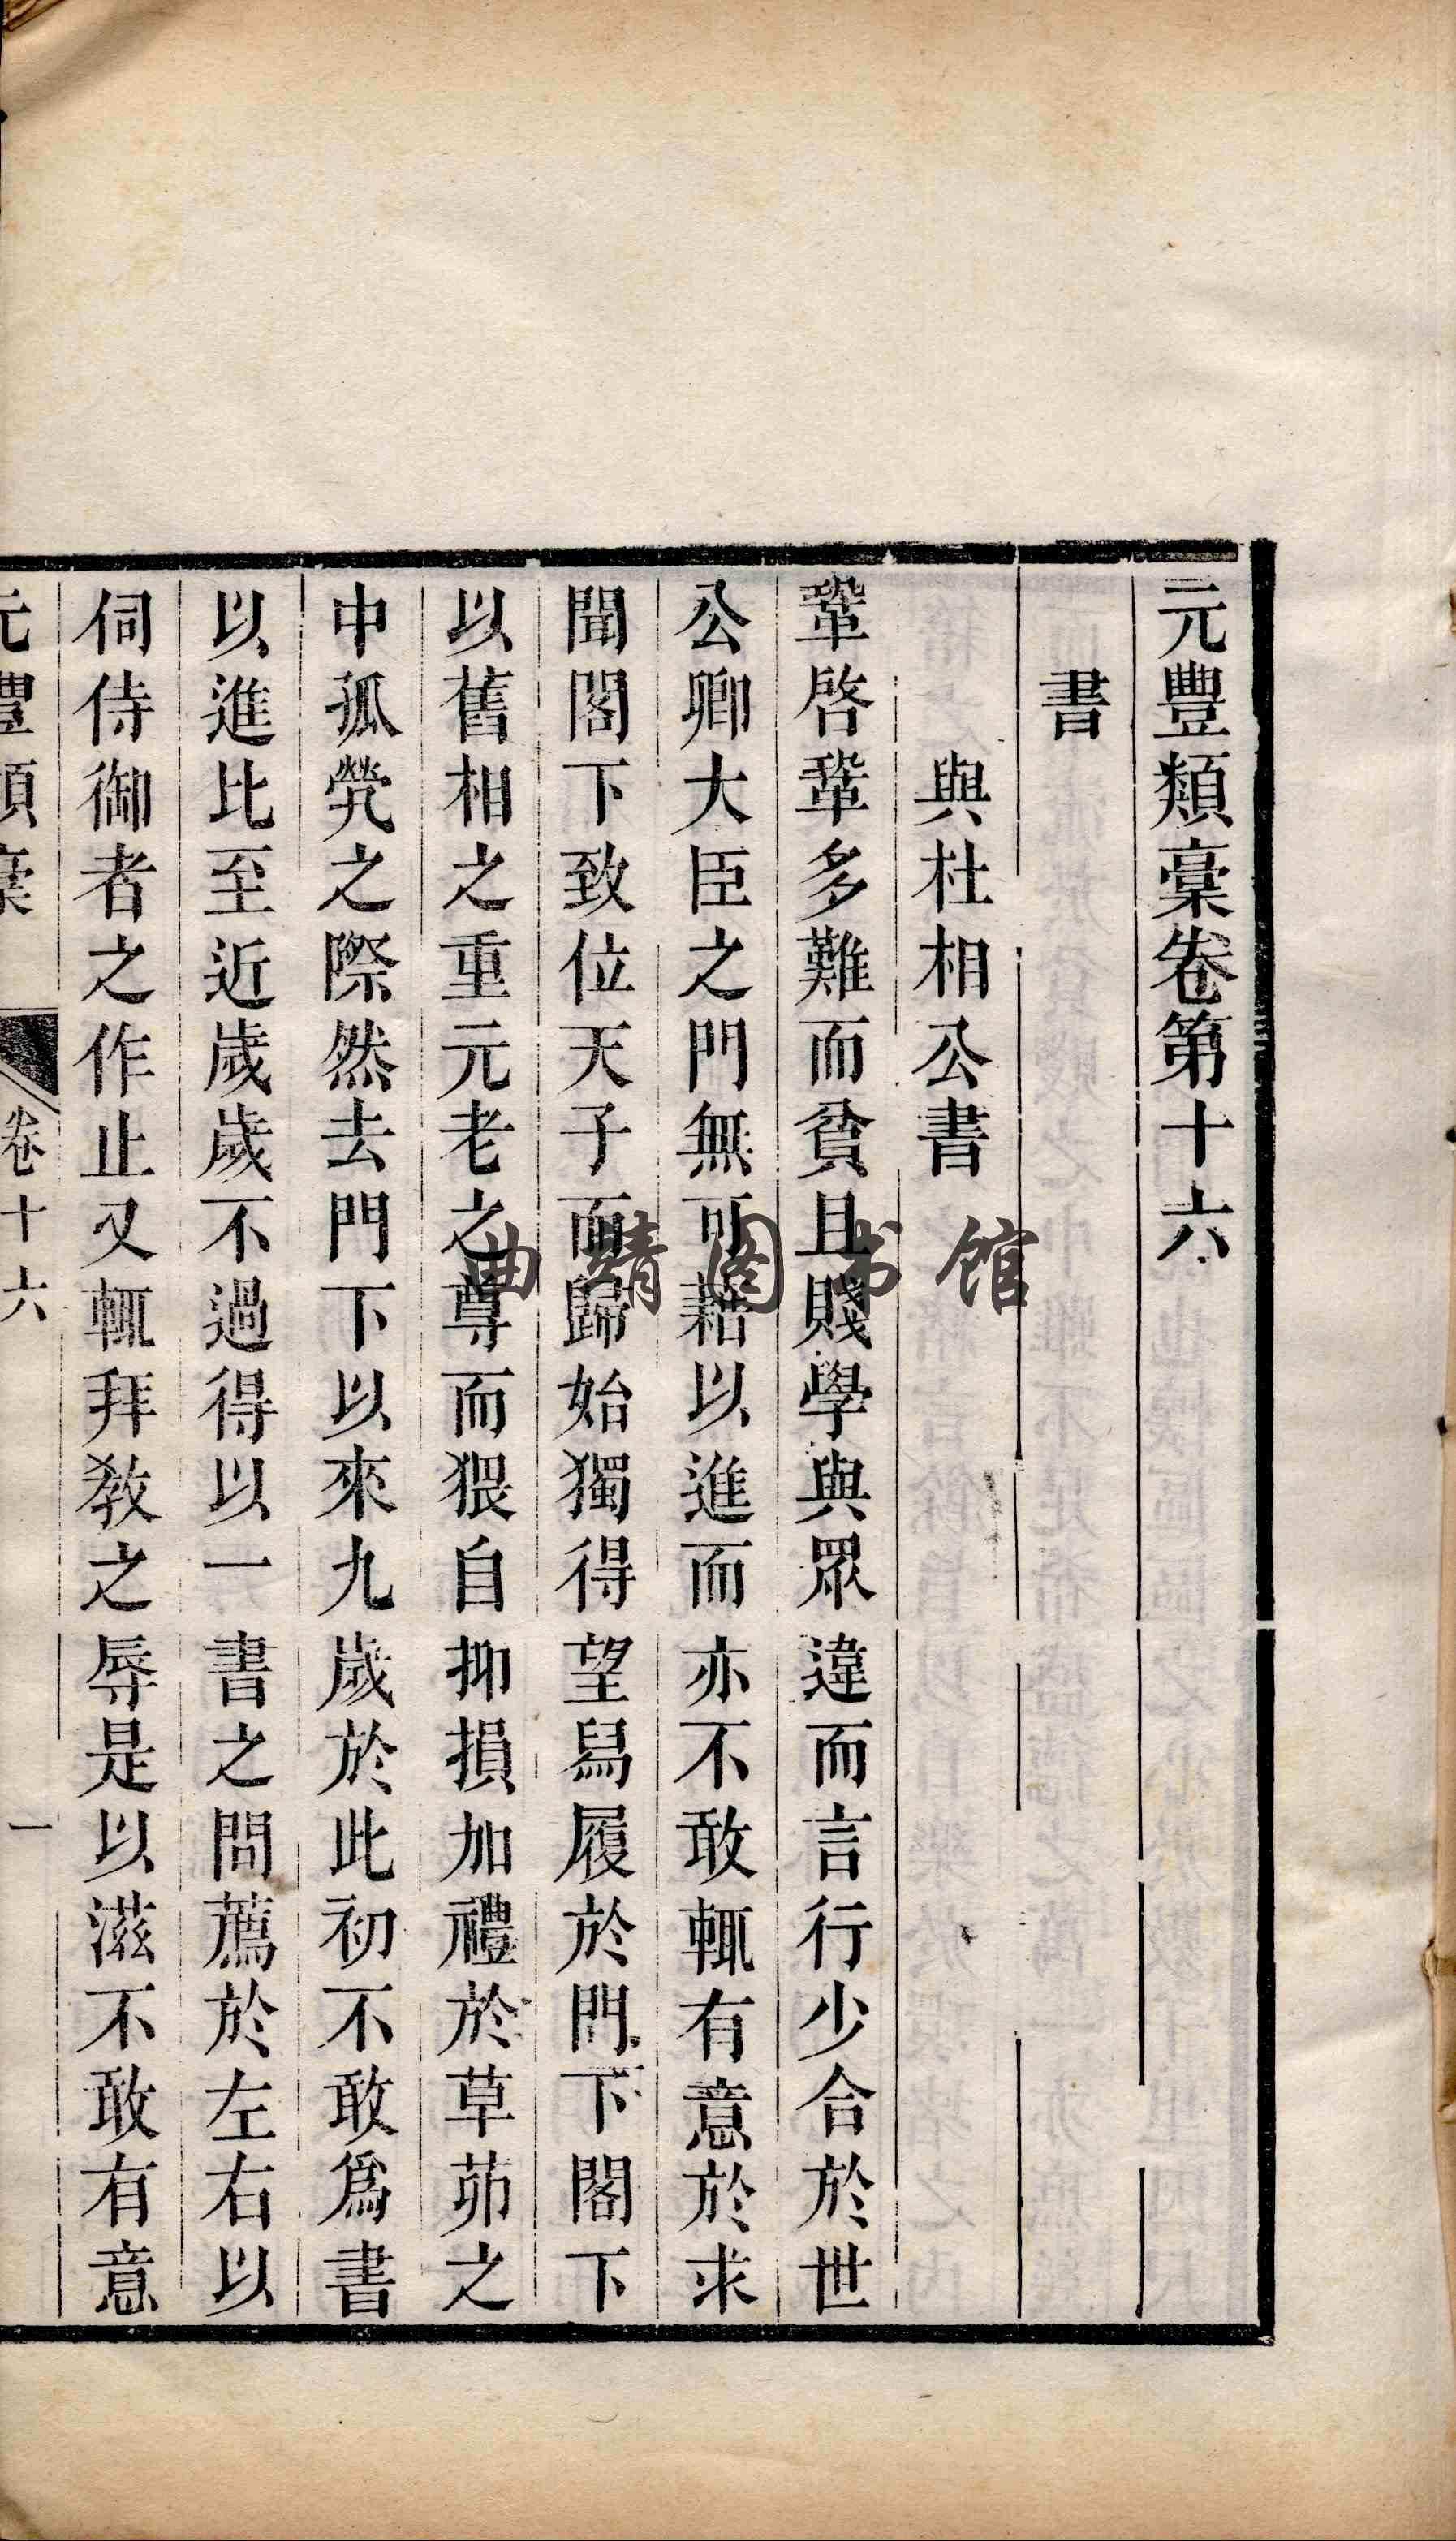 元豐類稾卷第十六
書
與杜相公書
鞏啓鞏多難而貧且賤學與眾違而言行少合於世
公卿大臣之門無可藉以進而亦不敢輒有意於求
聞閣下致位天子而歸始獨得望舄履於門下閣下
以舊相之重元老之尊而猥自抑損加禮於草茆之
中孤煢之際然去門下以來九歲於此初不敢爲書
以進比至近歲歲不過得以一書之問薦於左右以
伺侍御者之作止又輒拜敎之辱是以滋不敢有意
元豐類稾 卷十六 一
曲靖图书馆